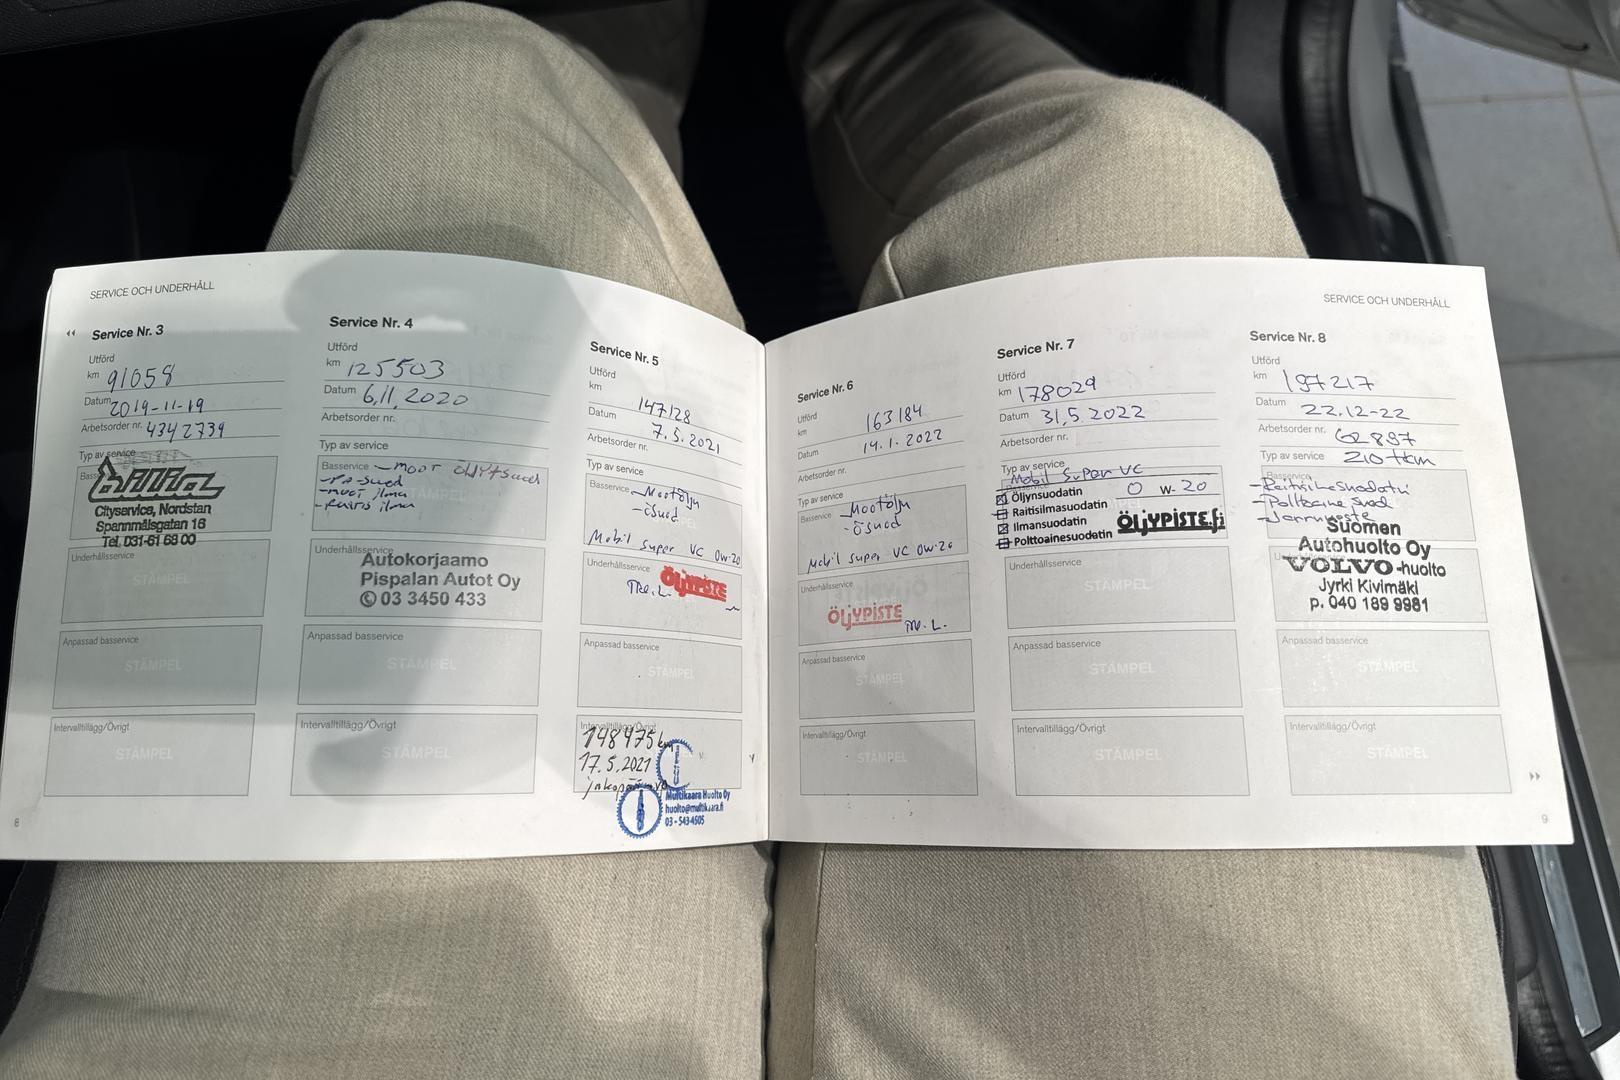 SERVICE OCH UNDERHÅLL
Service Nr. 3
Utförd
km 91058
Datum 2019-11-19
Arbetsorder nr. 4342739
Typ av service
Bilia
Cityservice, Nordstan
Spannmålsgatan 16
Tel. 031-61 68 00
Underhållsservice
STÄMPEL
Anpassad basservice
STÄMPEL
Intervalltillägg/Övrigt
STÄMPEL
8
Service Nr. 4
Utförd
km 125503
Datum 6,11,2020
Arbetsorder nr.
Typ av service
Basservice - moot öljy+suod
- moot ilma
- raitis ilma
STÄMPEL
Underhållsservice
Autokorjaamo
Pispalan Autot Oy
03 3450 433
Anpassad basservice
STÄMPEL
Intervalltillägg/Övrigt
STÄMPEL
Service Nr. 5
Utförd
km 147128
Datum 7.5.2021
Arbetsorder nr.
Typ av service
Basservice - Mootölju
- ösuod
Mobil super VC 0w-20
Underhållsservice
ÖLJYPISTE
Anpassad basservice
STÄMPEL
Intervalltillägg/Övrigt
148475 km
17.5.2021
Multikaara Huolto Oy
huolto@multikaara.fi
03 - 543 4505
SERVICE OCH UNDERHÅLL
Service Nr. 6
Utförd
km 163184
Datum 14.1.2022
Arbetsorder nr.
Typ av service
Basservice - Mootölju
- ösuod
Mobil super VC 0w-20
Underhållsservice
ÖLJYPISTE
Anpassad basservice
STÄMPEL
Intervalltillägg/Övrigt
STÄMPEL
Service Nr. 7
Utförd
km 178029
Datum 31,5.2022
Arbetsorder nr.
Typ av service
Mobil Super VC
0 W- 20
Öljynsuodatin
Raitisilmasuodatin
Ilmansuodatin
Polttoainesuodatin
ÖLJYPISTE.fi
Underhållsservice
STÄMPEL
Anpassad basservice
STÄMPEL
Intervalltillägg/Övrigt
STÄMPEL
Service Nr. 8
Utförd
km 197217
Datum 22.12-22
Arbetsorder nr. 62897
Typ av service 210 tkm
Basservice
- Raitisilmasuodatin
- Polttoaine suod
- Jarruneste
Suomen
Autohuolto Oy
VOLVO-huolto
Jyrki Kivimäki
p. 040 189 9981
Anpassad basservice
STÄMPEL
Intervalltillägg/Övrigt
STÄMPEL
9